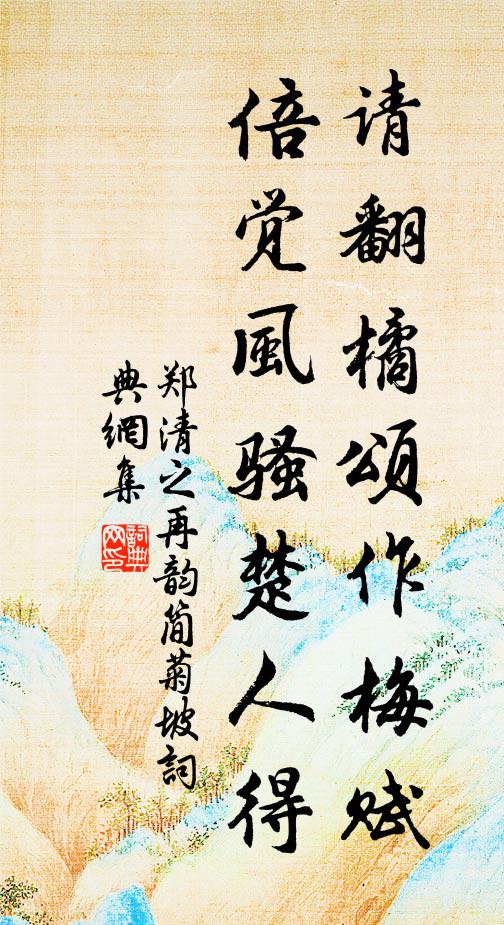 请翻橘頌作梅赋
倍觉風骚楚人得
郑清之再韵简菊坡詞
典網集
詞典网印